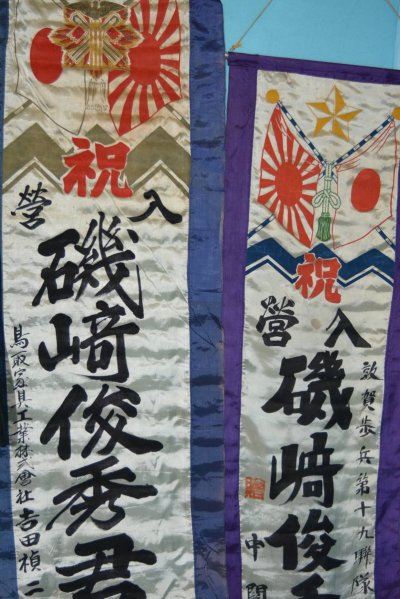 祝
入營
磯﨑俊秀君
鳥取家具工業株式會社 吉田禎二
祝
入營
敦賀歩兵第十九聯隊
磯﨑俊秀
贈
中